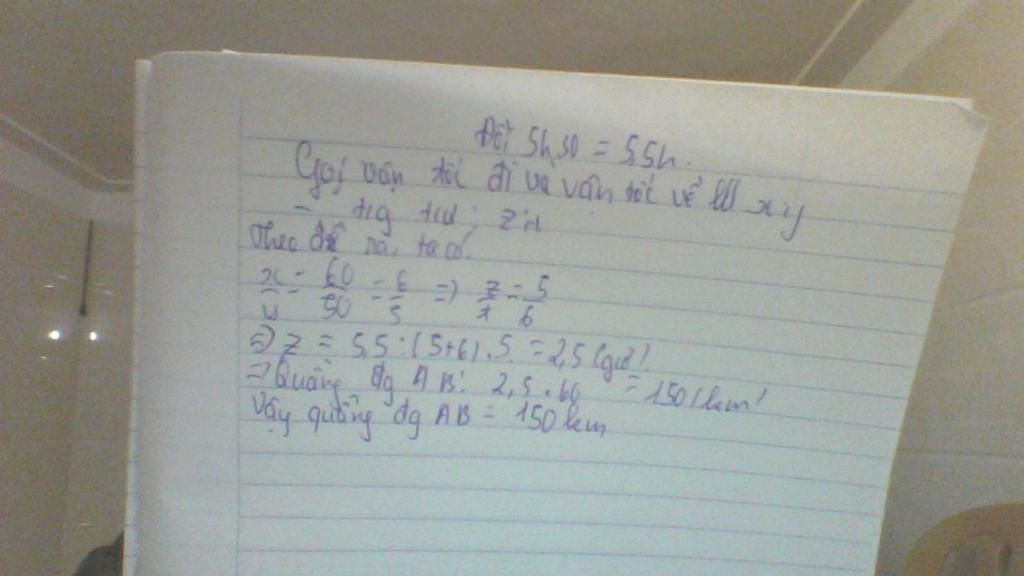 Đổi 5h30 = 5,5h.
Gọi vận tốc đi và vận tốc về lll x;y
- tg tư: z;t
Theo đề ra, ta có.
x/y = 60/50 = 6/5 => z/t = 5/6
=> z = 5,5:(5+6).5 = 2,5 (giờ)
=> Quãng đg AB: 2,5.60 = 150 (km)
Vậy quãng đg AB = 150 km